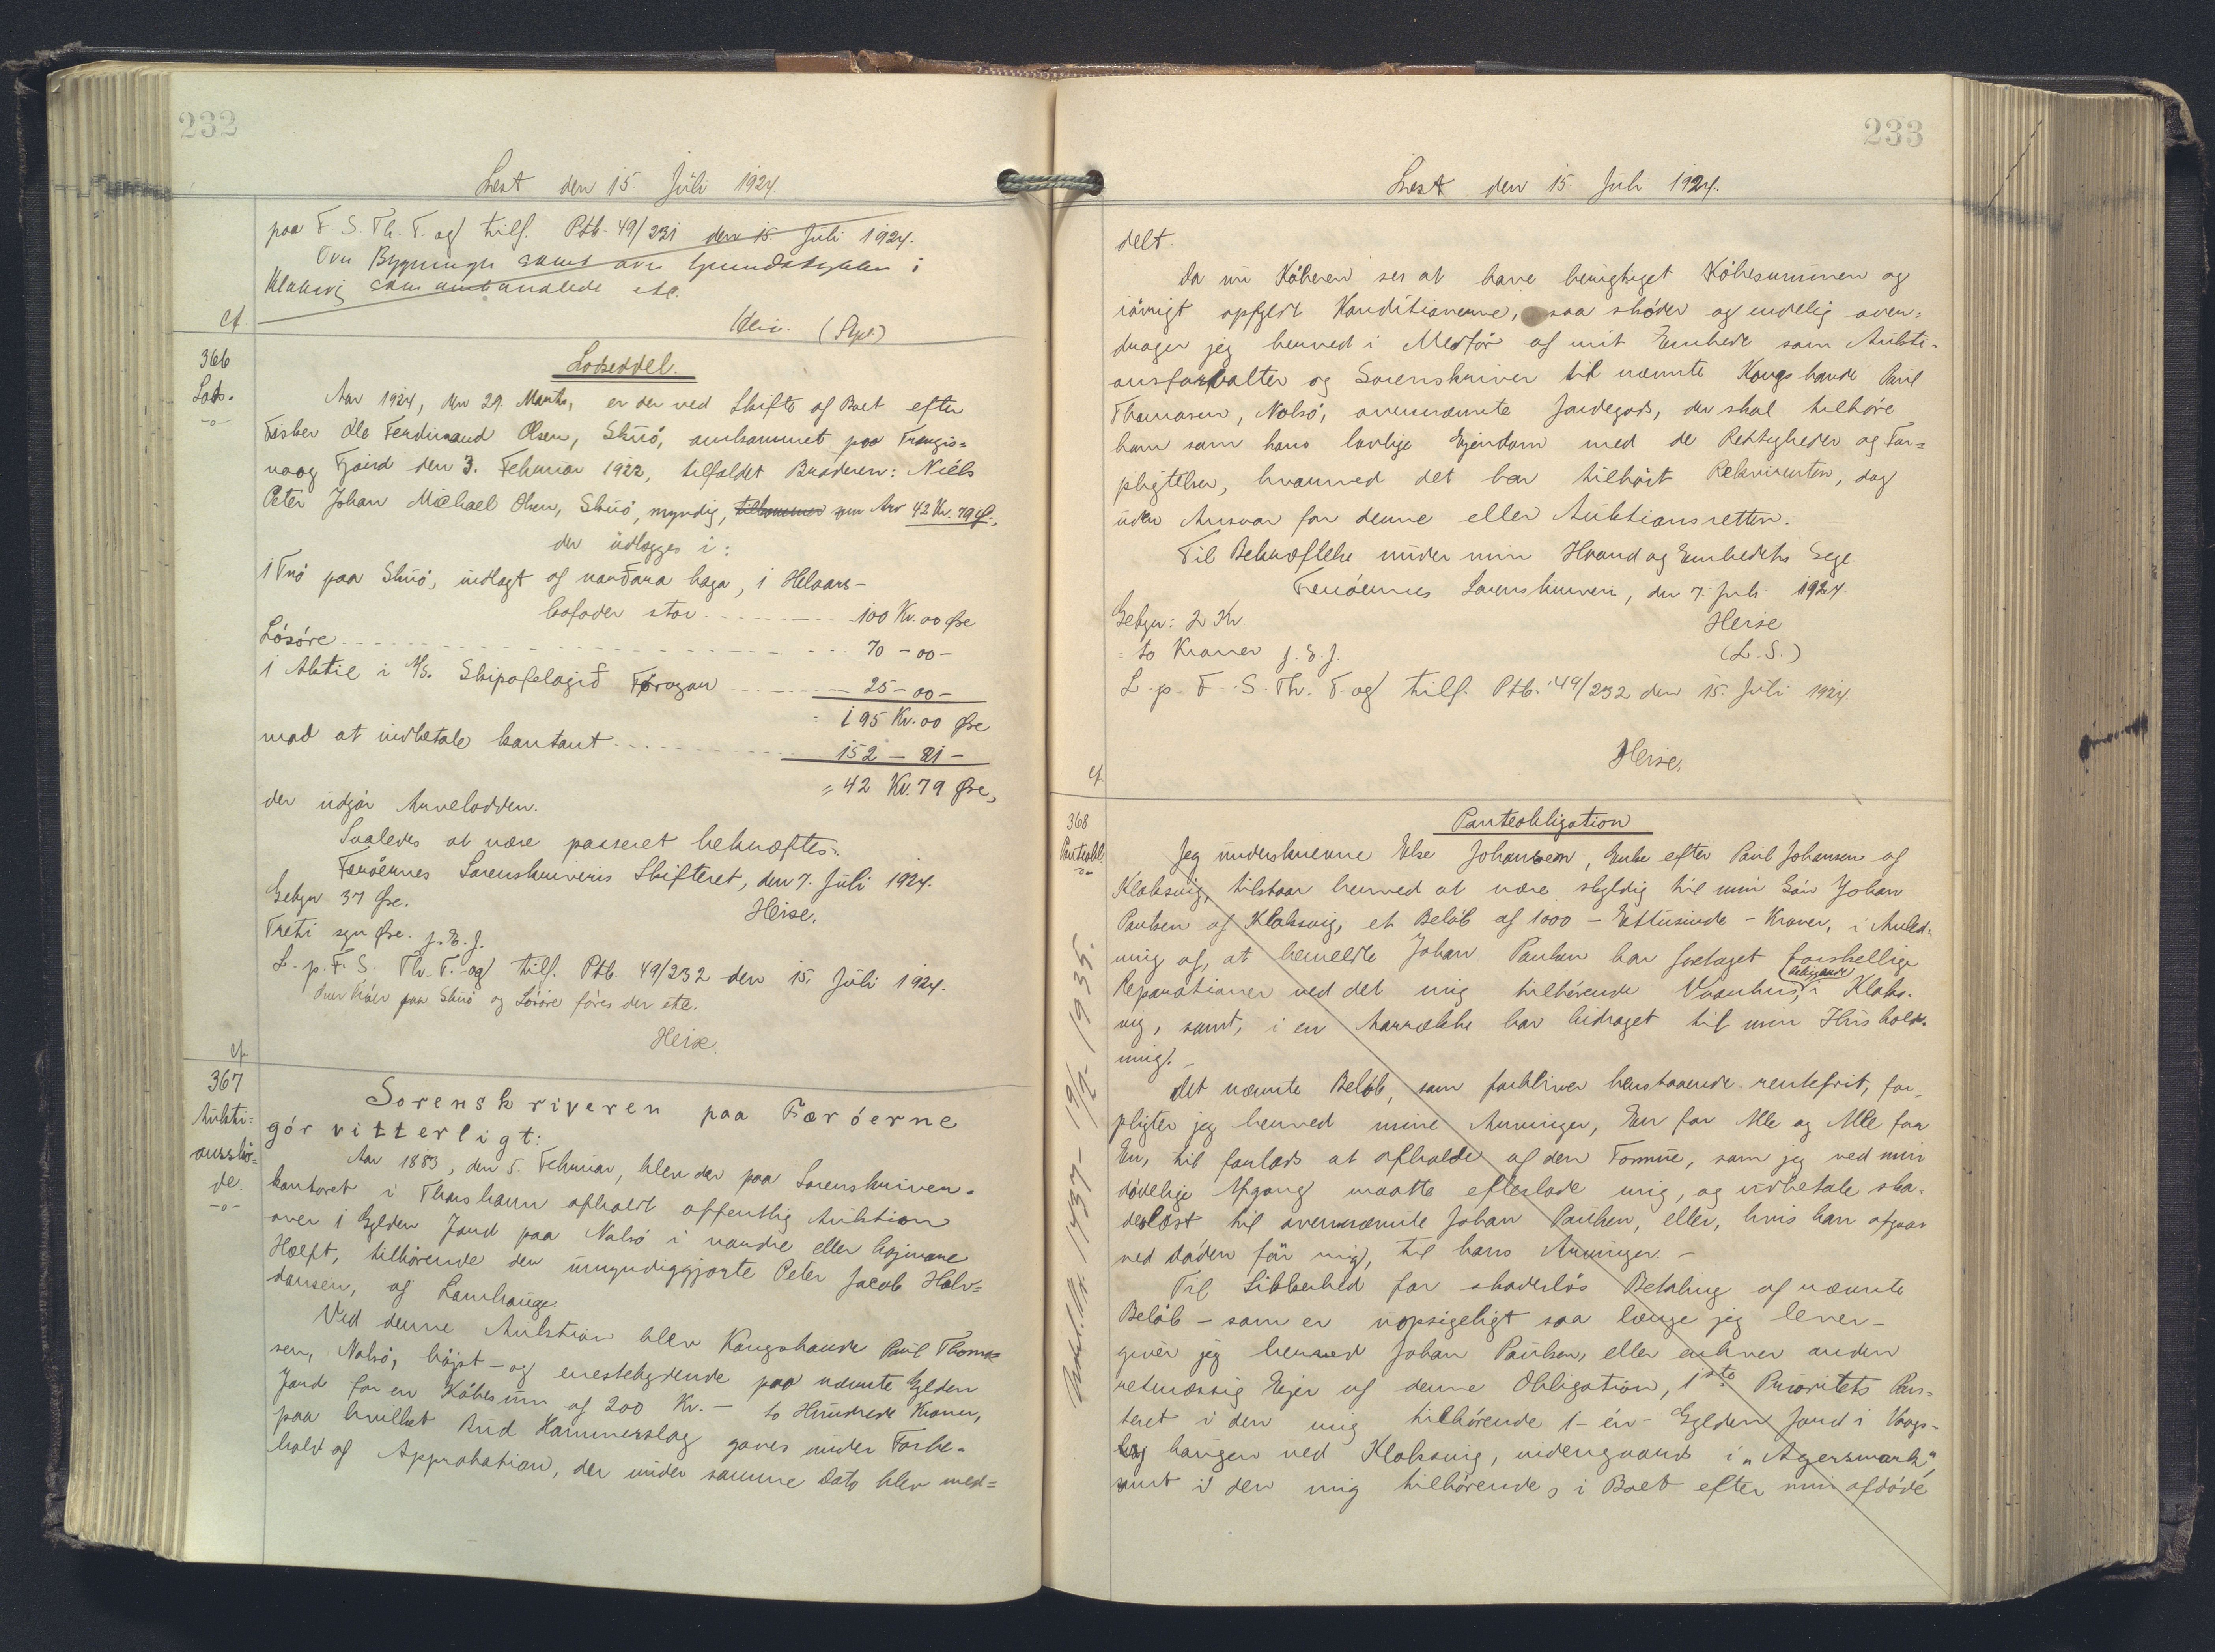 232
Læst den 15. Juli 1924.
paa F. S. Th. T. og tilf. Ptb. 49/231 den 15. Juli 1924.
Over Bygninger samt over Grundstykker i
Klaksvig etc.
cf.
Heise. (Spl)
366
Lods.
-o-
Lodseddel.
Aar 1924, den 29. Marts, er der ved Skifte af Boet efter
Fisker Ole Ferdinand Olsen, Skuó, omkommet paa Trongis=
vaag Fjord den 3. Februar 1922, tilfaldet Broderen: Niels
Peter Johan Michael Olsen, Skuó, myndig, tilkommer som Arv 42 Kr. 79 Ø.,
der udlægges i:
1 Tró paa Skuó, indlagt af nardara haga, i Helaars-
kofoder stor 100 Kr. 00 Øre
Lósóre 70 - 00 -
1 Aktie i A/S. Skipafelagið Føroyar 25 - 00 -
195 Kr. 00 Øre
mod at indbetale kontant 152 - 21 -
= 42 Kr. 79 Øre,
der udgór Arvelodden.
Saaledes at være passeret bekræftes.
Færóernes Sorenskriveris Skifteret, den 7. Juli 1924.
Gebyr 37 Øre.
Heise.
Treti syv Øre. J. E. J.
L. p. F. S. Th. T. og tilf. Ptb. 49/232 den 15. Juli 1924.
Over Tróen paa Skuó og Lósóre fóres der etc.
Heise.
cf.
367
Aukti=
onsskó=
de.
-o-
Sorenskriveren paa Færóerne
gór vitterligt:
Aar 1883, den 5. Februar, blev der paa Sorenskriver-
kontoret i Thorshavn afholdt offentlig Auktion
over 1 Gylden Jord paa Nolsó i nordre eller hojmare
Hælft, tilhórende den umyndiggjorte Peter Jacob Halv=
dansen, af Lamhauge.
Ved denne Auktion blev Kongsbonde Poul Thomas
sen, Nolsó, hójst- og enestebydende paa nævnte Gylden
Jord for en Kóbesum af 200 Kr. - to Hundrede Kroner,
paa hvilket Bud Hammerslag gaves under Forbe-
hold af Approbation, der under samme Dato blev med=
233
Læst den 15. Juli 1924.
delt.
Da nu Kóberen ses at have berigtiget Kóbesummen og
ióvrigt opfyldt Konditionerne, saa skóder og endelig over-
drager jeg herved i Medfór af mit Embede som Aukti-
onsforvalter og Sorenskriver til nævnte Kongsbonde Poul
Thomasen, Nolsó, ovennævnte Jordegods, der skal tilhóre
ham som hans lovlige Ejendom med de Rettigheder og For=
pligtelser, hvormed det har tilhórt Rekvirenten, dog
uden Ansvar for denne eller Auktionsretten.
Til Bekræftelse under min Haand og Embedets Segl.
Færóernes Sorenskriveri, den 7. Juli 1924.
Gebyr: 2 Kr.
Heise
= to Kroner J. E. J.
(L. S.)
L. p. F. S. Th. T. og tilf. Ptb. 49/232 den 15. Juli 1924.
Heise.
cf.
368
Panteobl.
-o-
Panteobligation
Jeg underskrevne Else Johansen, Enke efter Poul Johansen af
Klaksvig, tilstaar herved at være skyldig til min Són Johan
Poulsen af Klaksvig, et Belób af 1000 - Ettusinde - Kroner, i Anled-
ning af, at bemeldte Johan Poulsen har foretaget forskellige
Reparationer ved det mig tilhórende Vaanhus, i Klaks-
vig, samt, i en Aarrække har bidraget til min Hushold-
ning. -
Det nævnte Belób, som forbliver henstaaende rentefrit, for-
pligter jeg herved mine Arvinger, Een for Alle og Alle for
Een, til forlods at afholde af den Formue, som jeg ved min
dódelige Afgang maatte efterlade mig, og udbetale ska-
deslóst til ovennævnte Johan Poulsen, eller, hvis han afgaar
ved dóden fór mig, til hans Arvinger. -
Til Sikkerhed for skadeslós Betaling af nævnte
Belób - som er uopsigeligt saa længe jeg lever -
giver jeg herved Johan Poulsen, eller enhver anden
retmæssig Ejer af denne Obligation, 1ste Prioritets Pan-
teret i den mig tilhórende 1 - én - Gylden Jord i Vaags-
haugen ved Klaksvig, indengaards i "Agersmark",
samt i den mig tilhórende, i Boet efter min afdóde